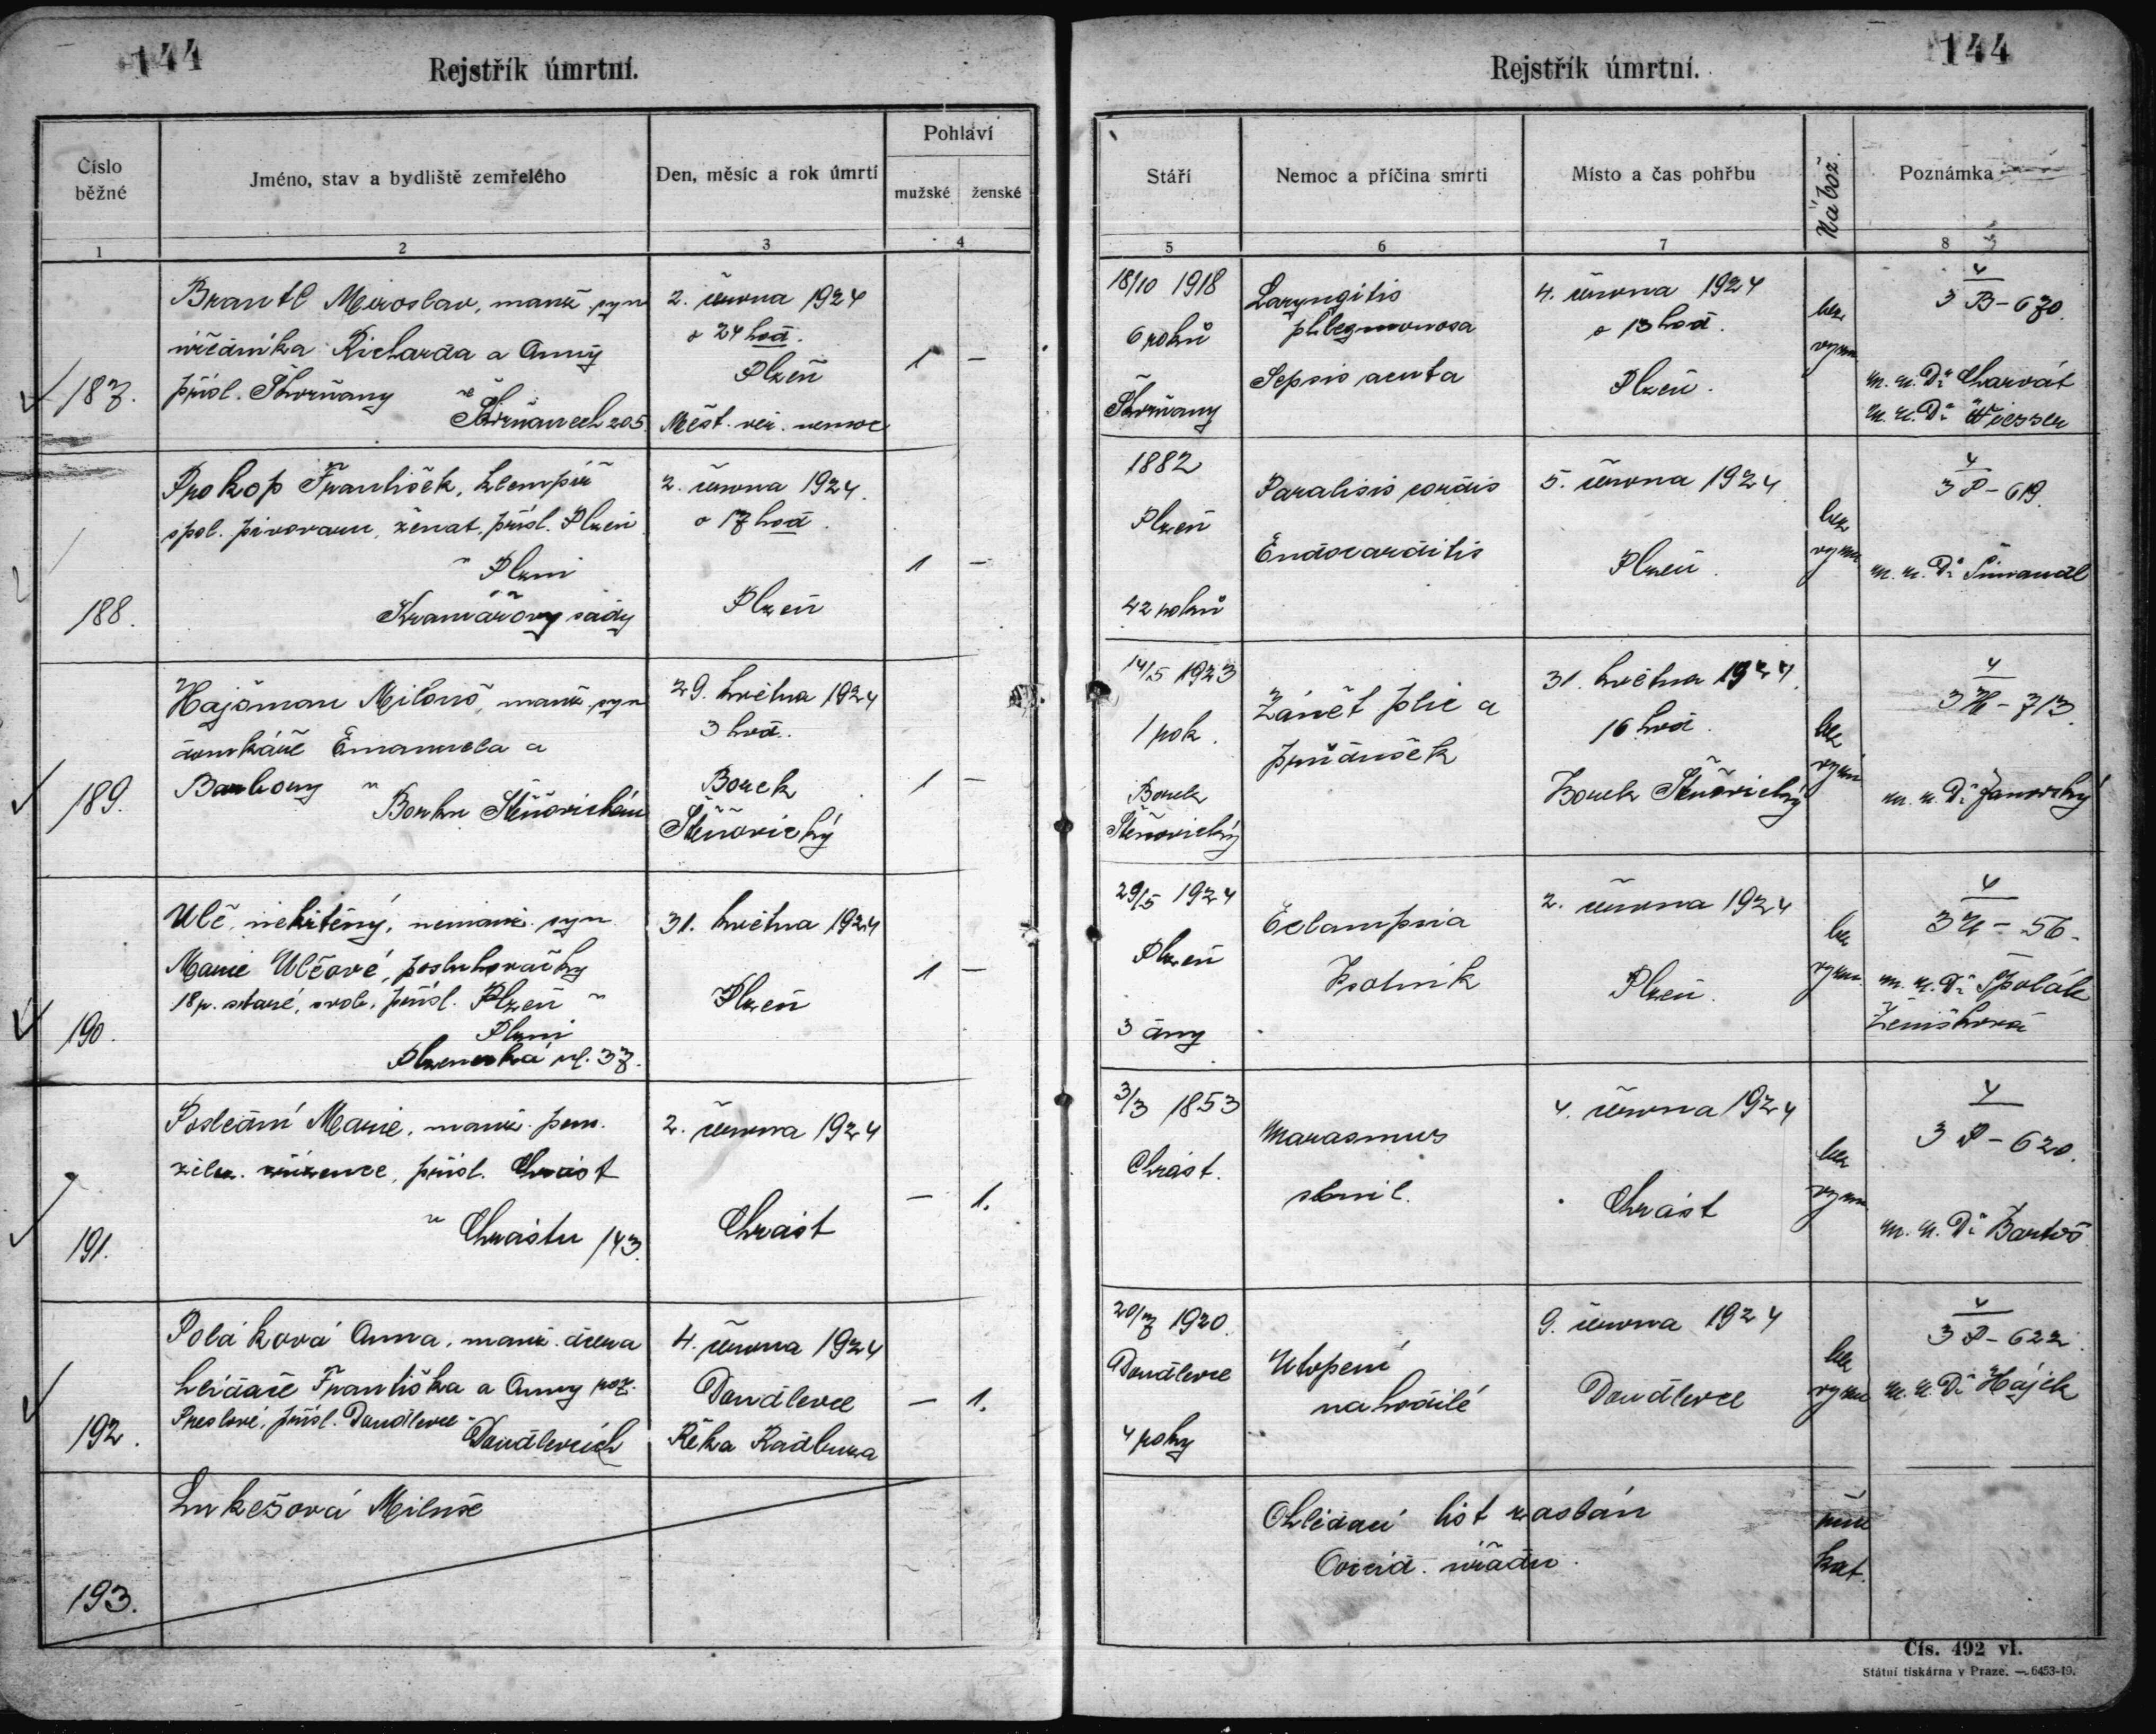 144
Rejstřík úmrtní.
Číslo běžné
Jméno, stav a bydliště zemřelého
Den, měsíc a rok úmrtí
Pohlaví
mužské
ženské
1
2
3
4
187.
Brantl Miroslav, manž. syn
úředníka Richarda a Anny
přísl. Štěnovany
205.
2. června 1924
o 24 hod.
Plzeň
Měst. veř. nemoc
1
–
188.
Prokop František, klempíř
spol. pivovaru, ženat, přísl. Plzeň
v Plzni
Kramářovy sady
2. června 1924.
o 17 hod.
Plzeň
1
–
189.
Hajšman Miloš, manž. syn
domkáře Emanuela a
Barbory v
Borku Štěnovickém
29. května 1924
3 hod.
Borek
Štěnovický
1
–
190.
Ulč, nekřtěný, nemanž. syn
Marie Ulčové, posluhovačky
18 r. staré, svob. přísl. Plzeň v
Plzni
Plzenecká ul. 37.
31. května 1924
Plzeň
1
–
191.
Poslední Marie, manž. pens.
želez. zřízence, přísl. Chrást
v Chrástu 143.
2. června 1924
Chrást
–
1.
192.
Poláková Anna, manž. dcera
hlídače Františka a Anny roz.
přísl. Doudlevce v
Doudlevcích
4. června 1924
Doudlevce
Řeka Radbuza
–
1.
193.
Lukešová Miluše
144
Rejstřík úmrtní.
Stáří
Nemoc a příčina smrti
Místo a čas pohřbu
Nábož.
Poznámka
5
6
7
8
18/10 1918
6 roků
Laryngitis
phlegmonosa
Sepsis acuta
4. června 1924
o 13 hod.
Plzeň.
bez
vyzn.
4
3 B-630.
m. u. Dr Charvát
m. u. Dr Wiesser
1882
Plzeň
42 roků
Paralisis cordis
Endocarditis
5. června 1924
Plzeň.
bez
vyzn.
4
3 P-619.
m. u. Dr Šimandl
14/5 1923
1 rok.
Borek
Štěnovický
Zánět plic a
průdušek
31. května 1924.
16 hod.
Borek Štěnovický
bez
vyzn.
4
3 H-313.
m. u. Dr Janovský
29/5 1924
Plzeň
3 dny
Eclampsia
Psotník
2. června 1924
Plzeň.
bez
vyzn.
4
3 U-56.
m. u. Dr Špolák
Zemišková
3/3 1853
Chrást.
Marasmus
senil.
4. června 1924
Chrást
bez
vyzn.
4
3 P-620.
m. u. Dr Bartoš
20/7 1920.
Doudlevce
4 roky
Utopení
nahodilé
9. června 1924
Doudlevce
bez
vyzn.
4
3 P-622.
m. u. Dr Hájek
Ohledací list zaslán
úřadu.
řím.
kat.
Čís. 492 vl.
Státní tiskárna v Praze. — 6453-19.